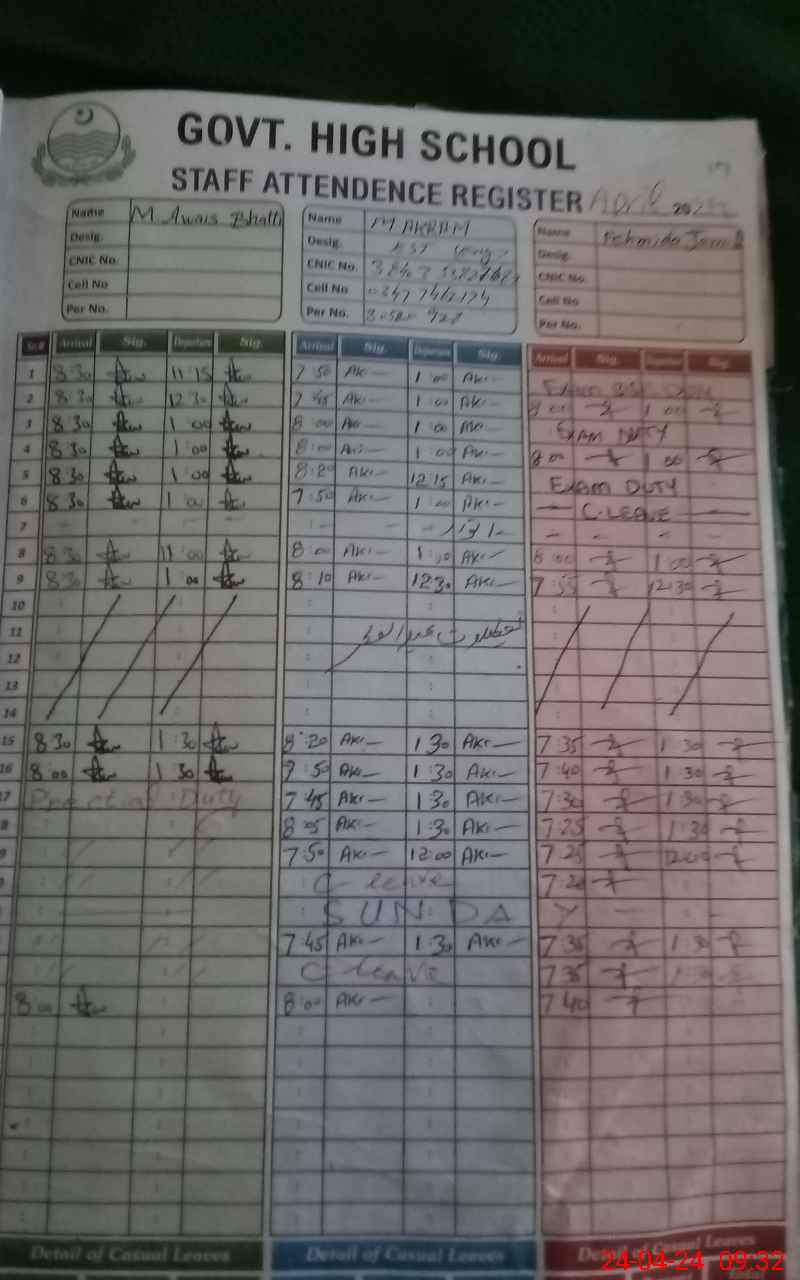 GOVT. HIGH SCHOOL
STAFF ATTENDENCE REGISTER April 202
Name M Awais Bhatti Name M AKRAM Name Fehmida Jamil
Desig. Desig. EST Desig.
CNIC No. CNIC No. CNIC No.
Cell No Cell No 0347 7462174 Cell No
Per No. Per No. Per No.
Sr.# Arrival Sig. Departure Sig. Arrival Sig. Departure Sig. Arrival Sig. Departure Sig.
1 8:30 11:15 7:50 AKr 1:00 AKr Exam Duty
2 8:30 12:30 7:45 AKr 1:00 AKr 8:00 1:00
3 8:30 1:00 8:00 AKr 1:00 AKr EXAM DUTY
4 8:30 1:00 8:00 AKr 1:00 AKr 8:00 1:00
5 8:30 1:00 8:20 AKr 12:15 AKr EXAM DUTY
6 8:30 1:00 7:50 AKr 1:00 AKr C-LEAVE
7 اتوار
8 8:30 11:00 8:00 AKr 1:00 AKr 8:00 1:00
9 8:30 1:00 8:10 AKr 12:30 AKr 7:55 12:30
10
11 تعطیلات عیدالفطر
12
13
14
15 8:30 1:30 8:20 AKr 1:30 AKr 7:35 1:30
16 8:00 1:30 7:50 AKr 1:30 AKr 7:40 1:30
17 Practical Duty 7:45 AKr 1:30 AKr 7:30 1:30
8 8:05 AKr 1:30 AKr 7:25 1:30
9 7:50 AKr 12:00 AKr 7:25 12:00
C leave 7:20
SUNDAY
7:45 AKr 1:30 AKr 7:35 1:30
C leave 7:35 1:30
8:00 8:00 AKr 7:40
Detail of Casual Leaves Detail of Casual Leaves Detail of Casual Leaves
24-04-24 09:32